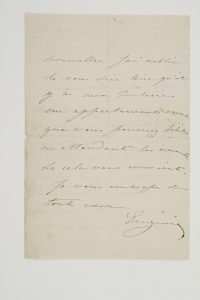 nouvelles j'ai oublié
de vous dire hier qu'il
y a aux Tuileries
un appartement
que vous pourriez habiter
en attendant
si cela vous convient.
Je vous embrasse de
tout cœur
Eugénie